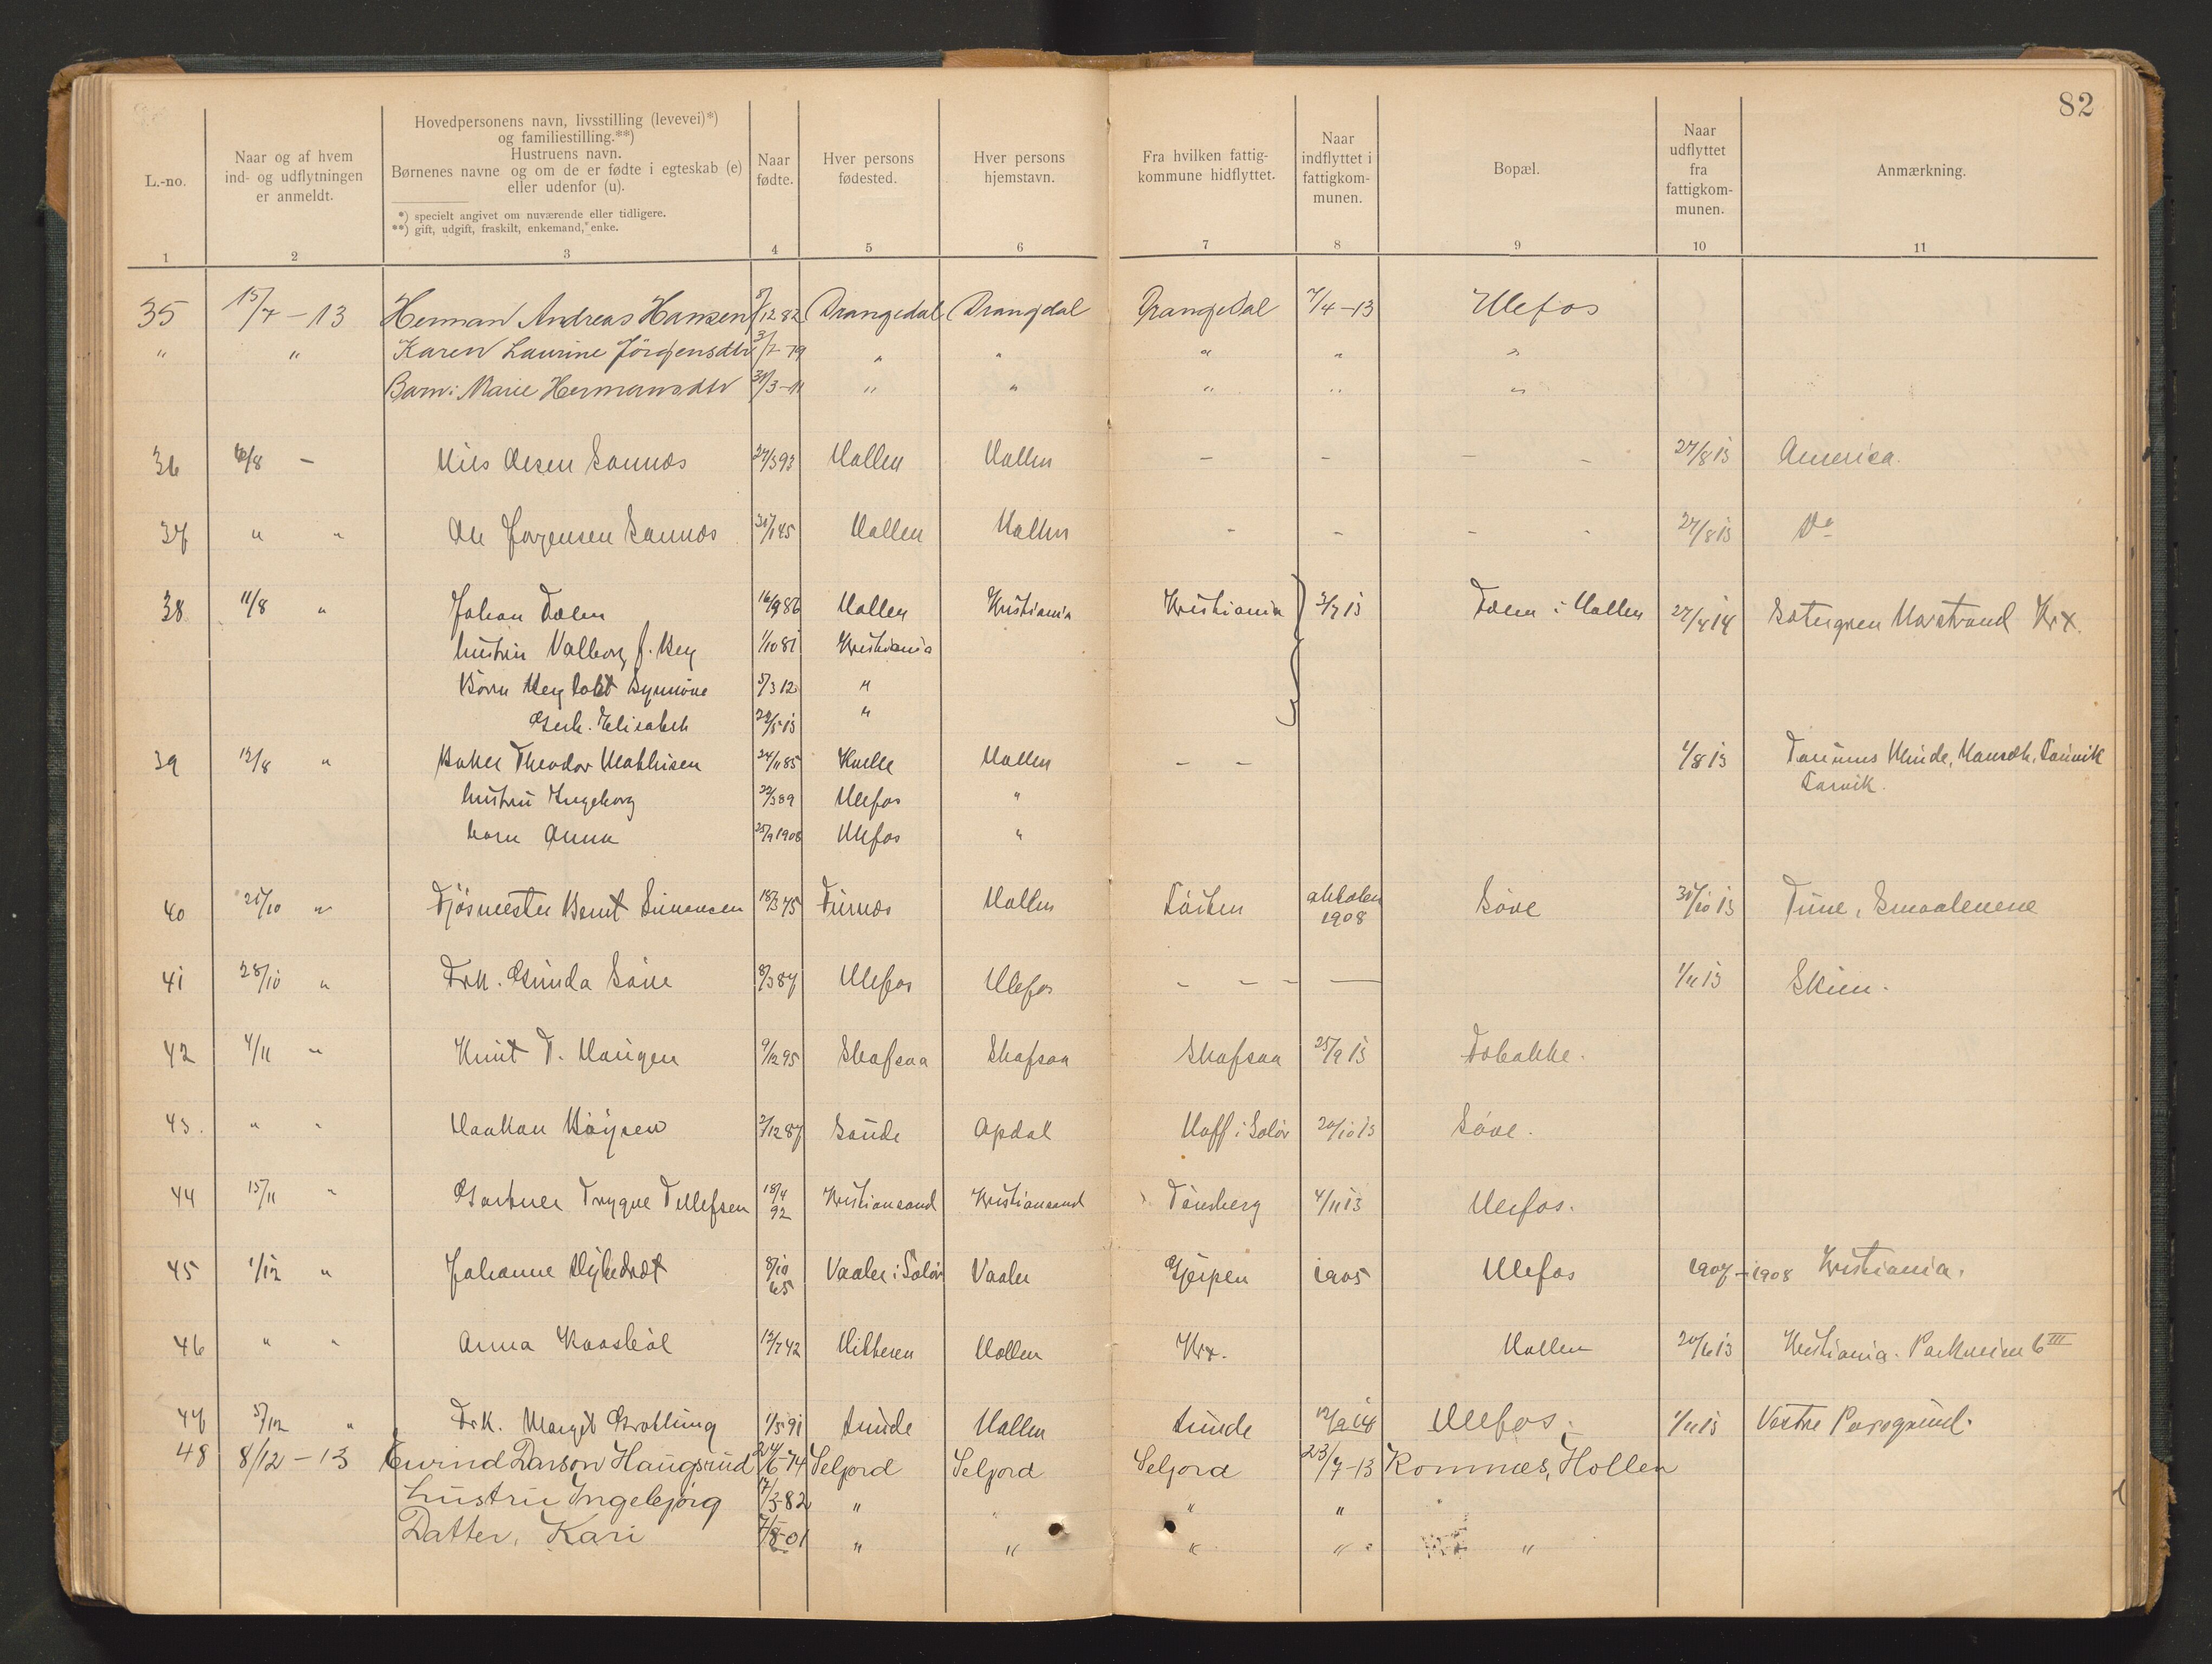 82
L.-no.
Naar og af hvem
ind- og udflytningen
er anmeldt.
Hovedpersonens navn, livsstilling (levevei)*)
og familiestilling.**)
Hustruens navn.
Børnenes navne og om de er fødte i egteskab (e)
eller udenfor (u).
*) specielt angivet om nuværende eller tidligere.
**) gift, udgift, fraskilt, enkemand, enke.
Naar
fødte.
Hver persons
fødested.
Hver persons
hjemstavn.
Fra hvilken fattig-
kommune hidflyttet.
Naar
indflyttet i
fattigkom-
munen.
Bopæl.
Naar
udflyttet
fra
fattigkom-
munen.
Anmærkning.
1 2 3 4 5 6 7 8 9 10 11
35 15/7 - 13 Herman Andreas Hansen /12 82 Drangedal Drangdal Drangedal 7/4 - 13 Ulefos
" " Karen Laurine Jörgensdtr 3/7-79 " " " " "
Barn: Marie Hermansdtr 31/3-11 " " " " "
36 /8 - Nils Olsen Sannes 27/3 93 Hollen Hollen - - - - 27/8 13 America.
37 " " Ole Jorgensen Sannes 45 Hollen Hollen - - - - 27/8 13 Do
38 11/8 " Johan Dalen 16/9 86 Hollen Kristiania Kristiania 3/7 13 Dalen i Hollen 27/4 14 Krx.
hustru Valborg f. Berg 1/10 81 Kristiania
Børn 5/3 12 "
Elisabeth 22/5 13 "
39 12/8 " Theodor Mathisen 24/11 85 Hollen - - 1/8 13 Minde, Larvik
hustru Ingeborg 22/3 89 Ulefos " Larvik.
barn Anna 25/9 1908 Ulefos "
40 25/10 " Fjösmester Bernt Simonsen 18/3 45 Hollen 1908 Söve 30/10 13 Tune, Smaalenene
41 28/10 " Frk. Gunda Söve 8/3 87 Ulefos Ulefos - - - — 1/11 13 Skien.
42 4/11 " Knut T. Haugen 9/12 95 Skafsaa Skafsaa Skafsaa 25/9 13
43. " " Haakon 3/12 87 Saude Opdal Hoff i Solör 20/10 13 Söve.
44 15/11 " Gartner Trygve Tellefsen 18/4 92 Kristiansand Kristiansand Tönsberg 4/11 13 Ulefos.
45 1/12 " Johanne 8/10 65 Vaaler i Solör Vaaler Gjerpen 1905 Ulefos 1907-1908 Kristiania.
46 " " Anna 12/7 42 Hitteren Hollen Krx. Hollen 20/6 13 Kristiania. Parkveien 6 III
47 5/12 " Frk. Margit 1/5 91 Lunde Hollen Lunde Ulefos. 1/11 13 Vestre Porsgrund.
48 8/12 - 13 Eivind Larson Haugsrud 24/6-74 Seljord Seljord Seljord 23/7-13 Romnes, Hollen
hustru Ingebjörg 17/3-82 " " " "
Datter, Kari 7/8-01 " " " " "